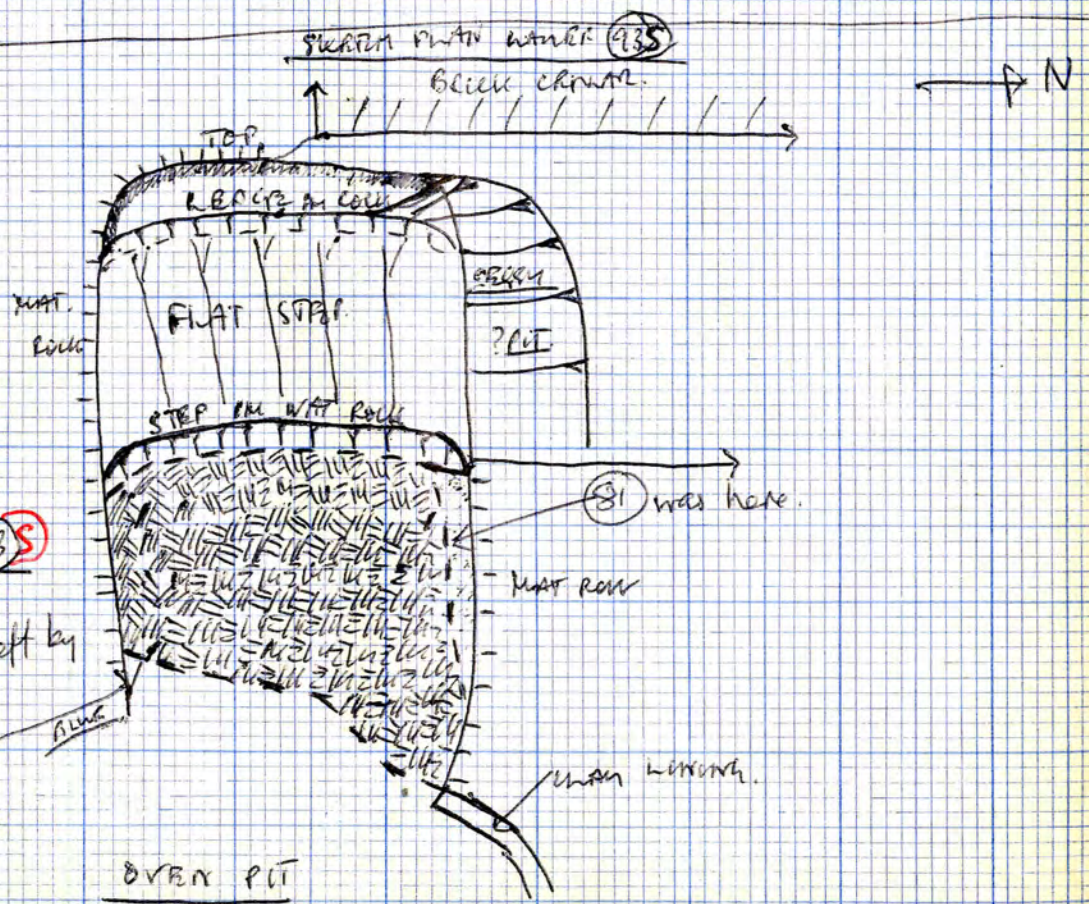 SKETCH PLAN LAYER 93S
BRICK CELLAR.
N
TOP.
LEDGE IN ROCK
NAT.
ROCK
FLAT STEP.
? PIT.
STEP IN NAT ROCK
81 was here.
S
NAT ROCK
left by
CLAY LINING.
OVEN PIT